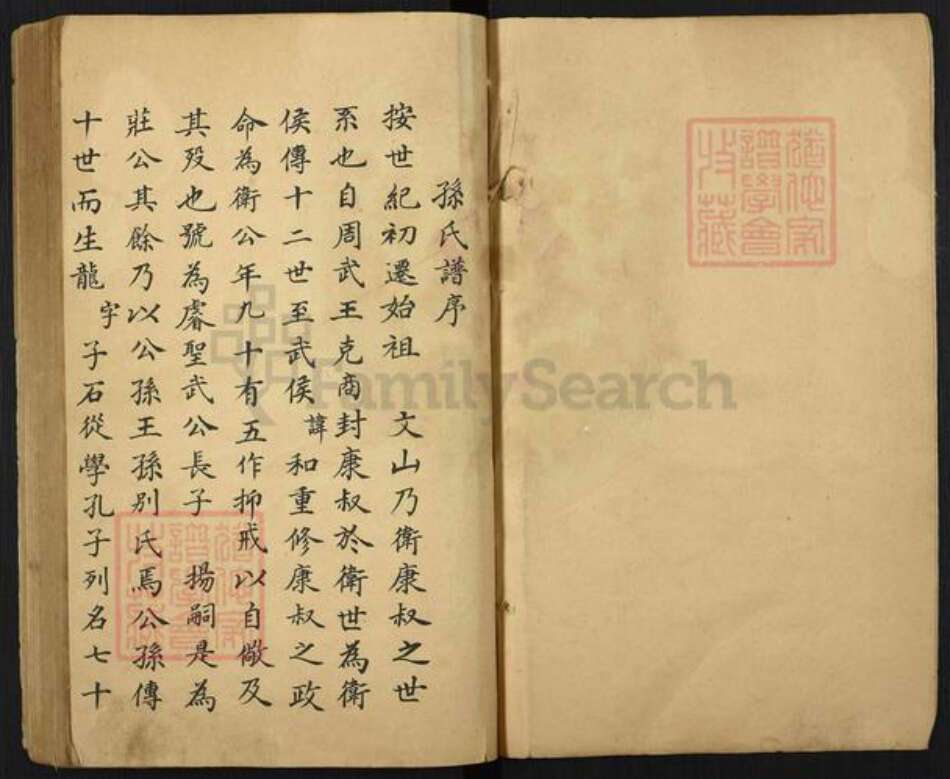 孫氏譜序
按世紀初遷始祖 文山乃衛康叔之世
系也自周武王克商封康叔於衛世為衛
侯傳十二世至武侯諱和重修康叔之政
命為衛公年九十有五作抑戒以自儆及
其歿也號為睿聖武公長子 揚嗣是為
莊公其餘乃以公孫王孫別氏焉公孫傳
十世而生龍字子石從學孔子列名七十
FamilySearch